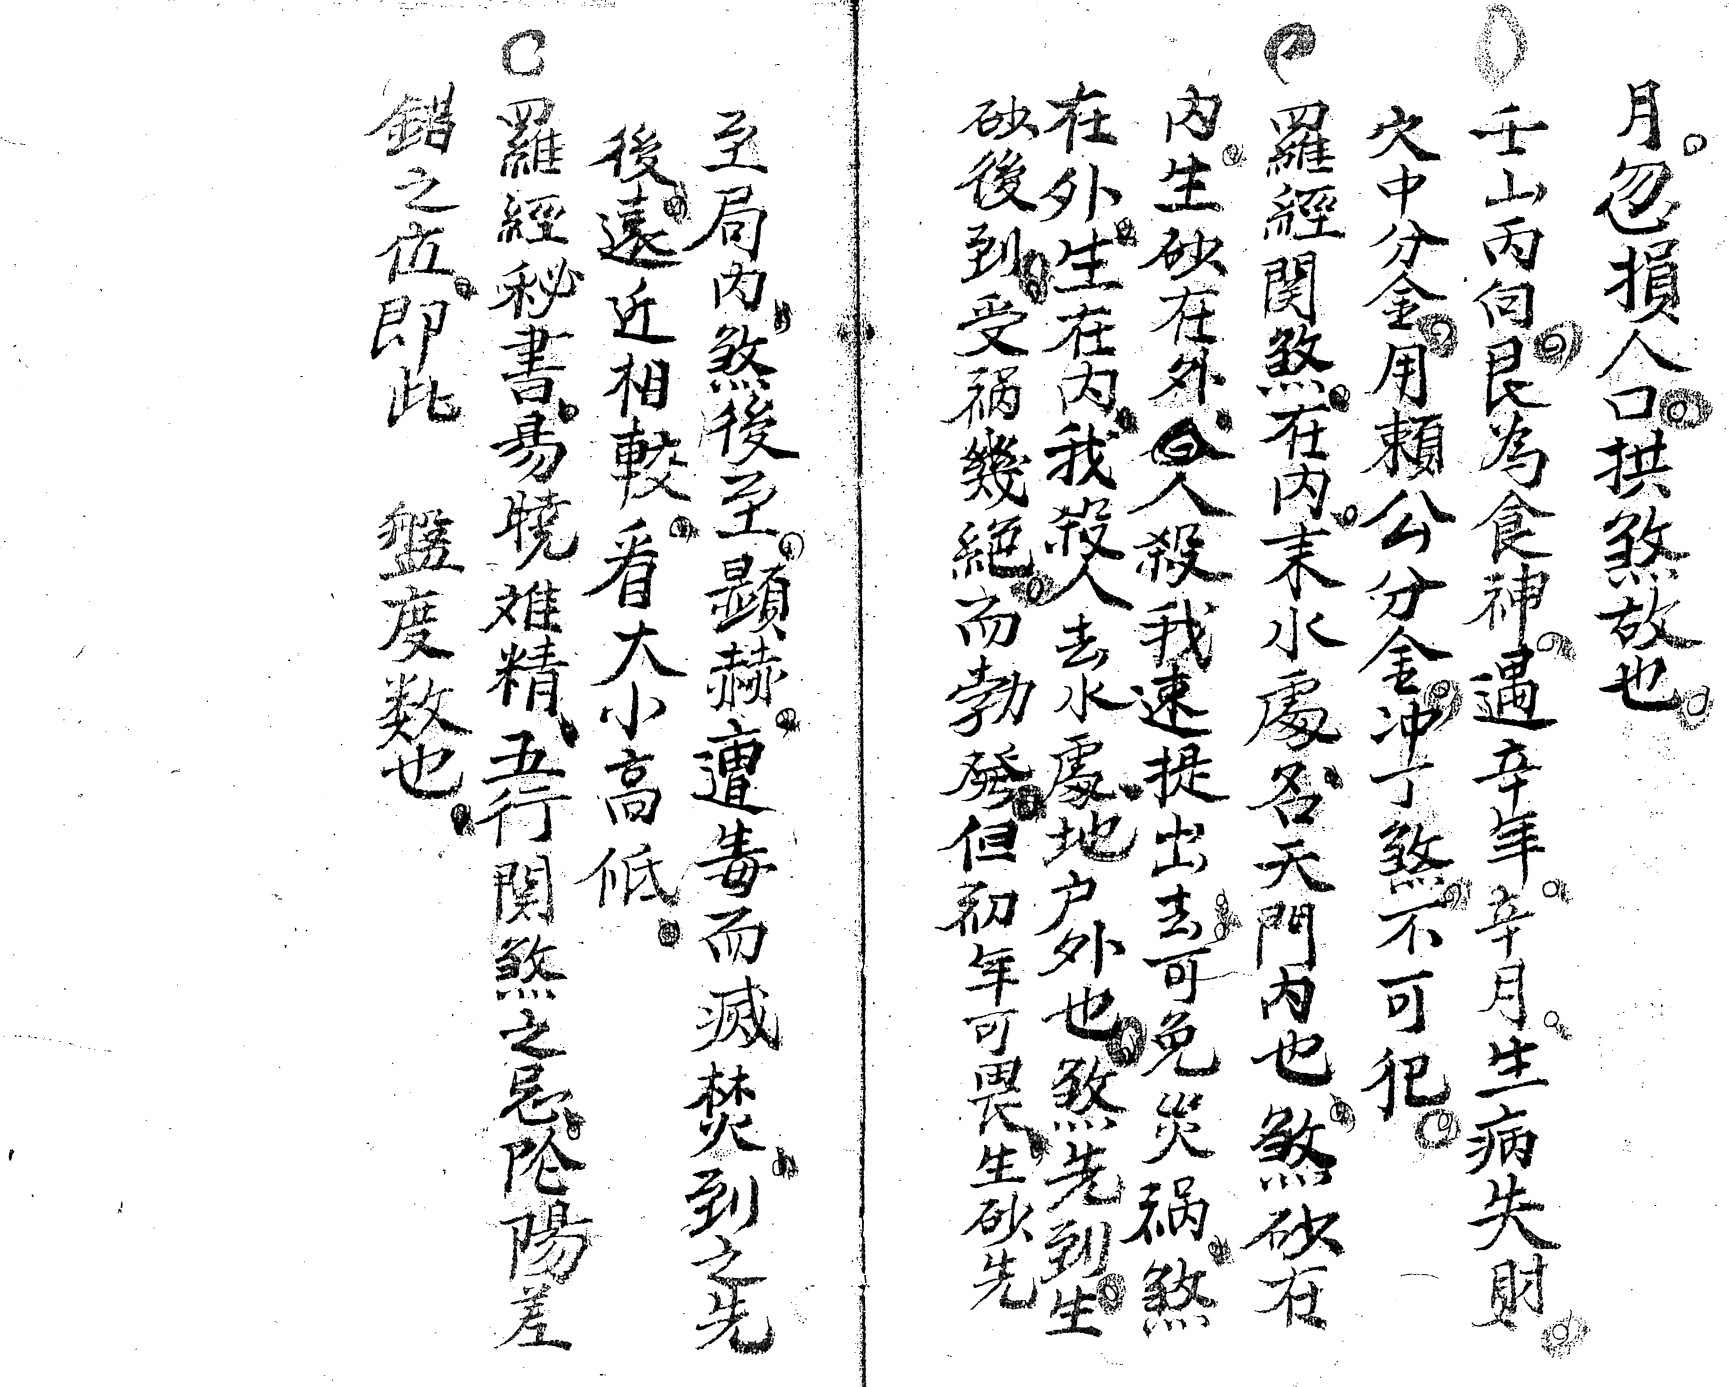 月忽損人口拱煞故也
壬山丙向艮為食神遇辛年辛月生病失財
穴中分金用賴公分金冲丁煞不可犯
羅經関煞在内来水處名天門内也煞砂在
内生砂在外人殺我速提出去可免災禍煞
在外生在内我殺人去水處地户外也煞先到生
砂後到受禍幾絕而勃發但初年可畏生砂先
至局内煞後至顕赫遭毒而滅焚到之先
後遠近相較看大小高低
羅經秘書易曉难精五行関煞之忌陰陽差
錯之位即此 盤度数也